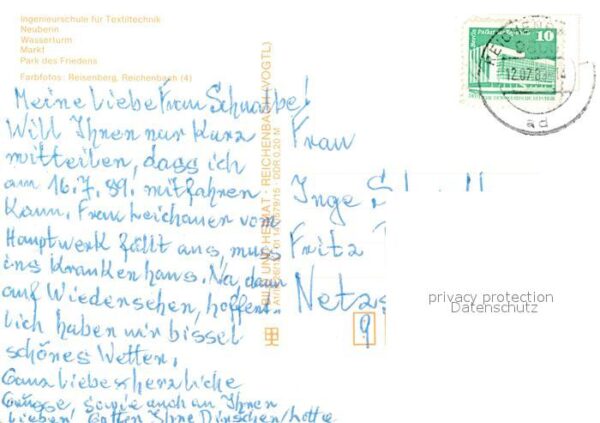 Ingenieurschule für Textiltechnik
Neuberin
Wasserturm
Markt
Park des Friedens
Farbfotos: Reisenberg, Reichenbach (4)
Meine Liebe Frau Schwalbe!
Will Ihnen nur kurz
mitteilen, dass ich
am 16.7.89. mitfahren
kann. Frau Leichauer vom
Hauptwerk fällt aus, muss
ins Krankenhaus. Na, dann
auf Wiedersehen, hoffent-
lich haben wir bissel
schönes Wetter.
Ganz liebe herzliche
Grüsse, sowie auch an Ihren
lieben Gatten Ihre Dinschen/Lotte
BILD UND HEIMAT · REICHENBACH (VOGTL)
DDR 0,20 M
Frau
Inge
Fritz
Netzs
9
10
12.07.8
privacy protection
Datenschutz